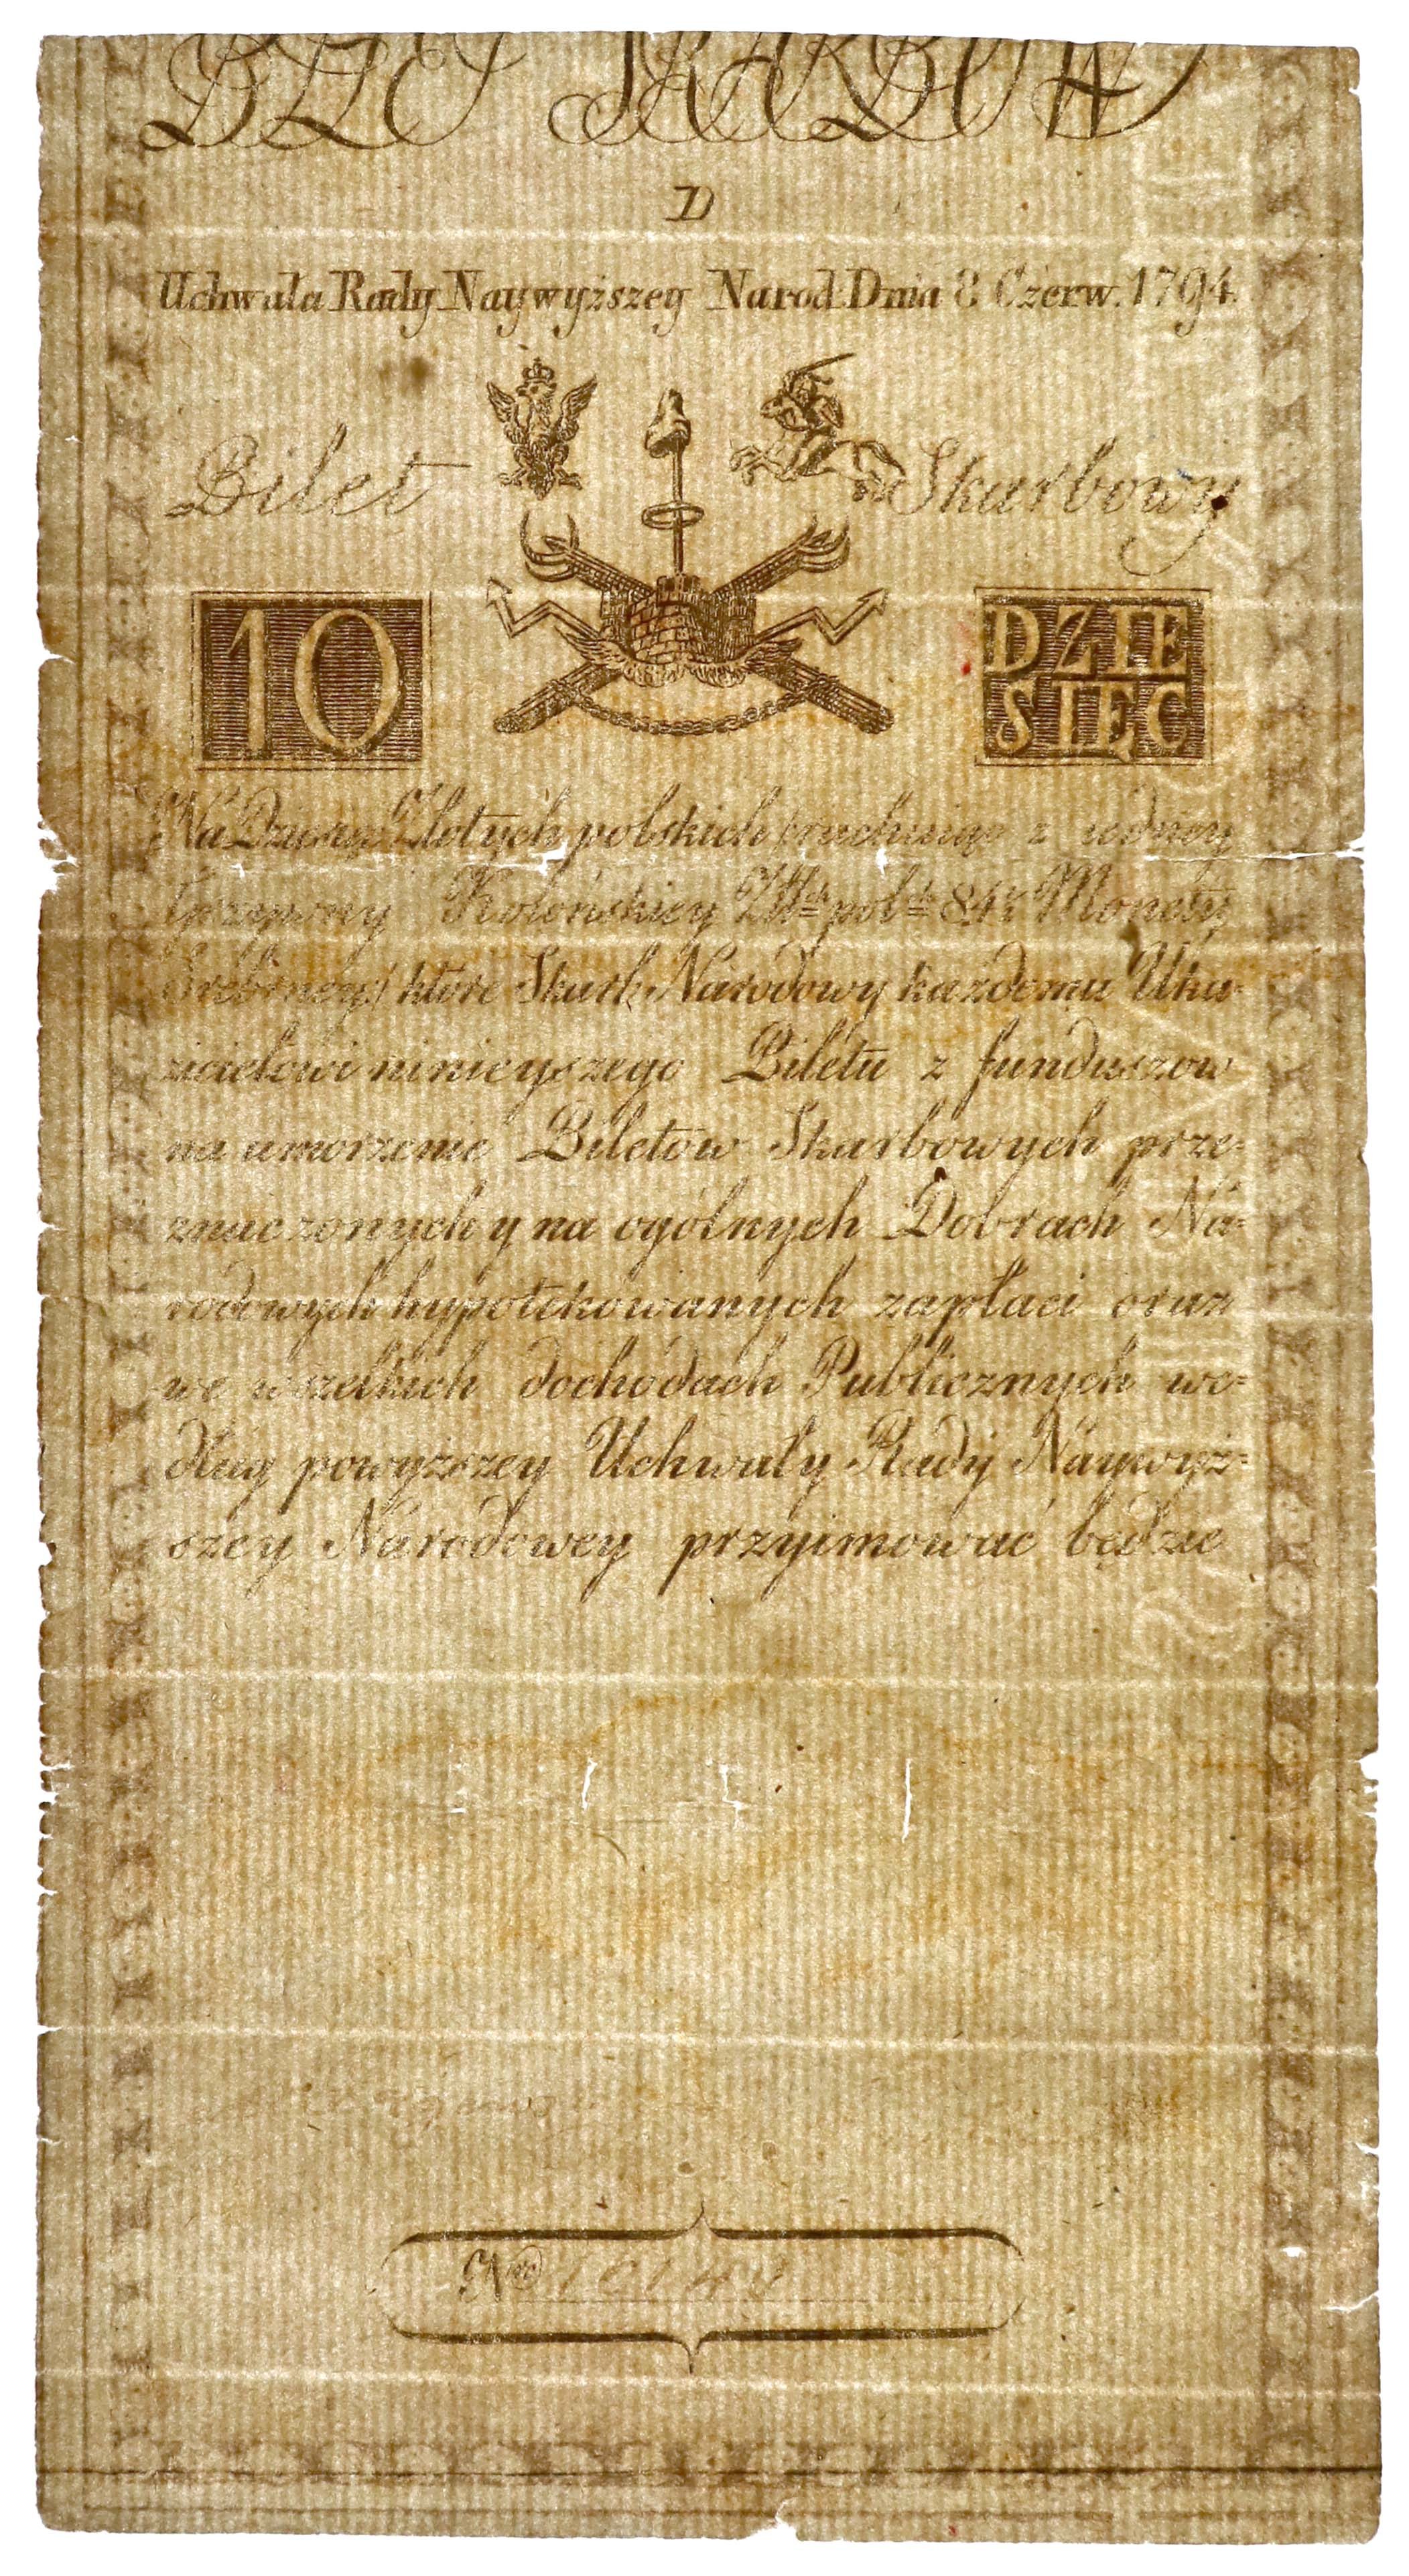 BILET SKARBOWY
D
Uchwała Rady Naywyższey Narod: Dnia 8 Czerw. 1794.
Bilet Skarbowy
10
DZIE
SIĘC
Na Dziesięć Złotych polskich (rachuiąc z iedney
Grzywny Koleńskiey Złłch polch 84½ Monety
Srebrney) ktore Skarb Narodowy każdemu Uka=
zicielowi ninieyszego Biletu z funduszow
na umorzenie Biletow Skarbowych prze=
znaczonych y na ogólnych Dobrach Na=
rodowych hypotekowanych zapłaci oraz
we wszelkich dochodach Publicznych we=
dług powyższey Uchwały Rady Naywyż=
szey Narodowey przyimować będzie
Nro